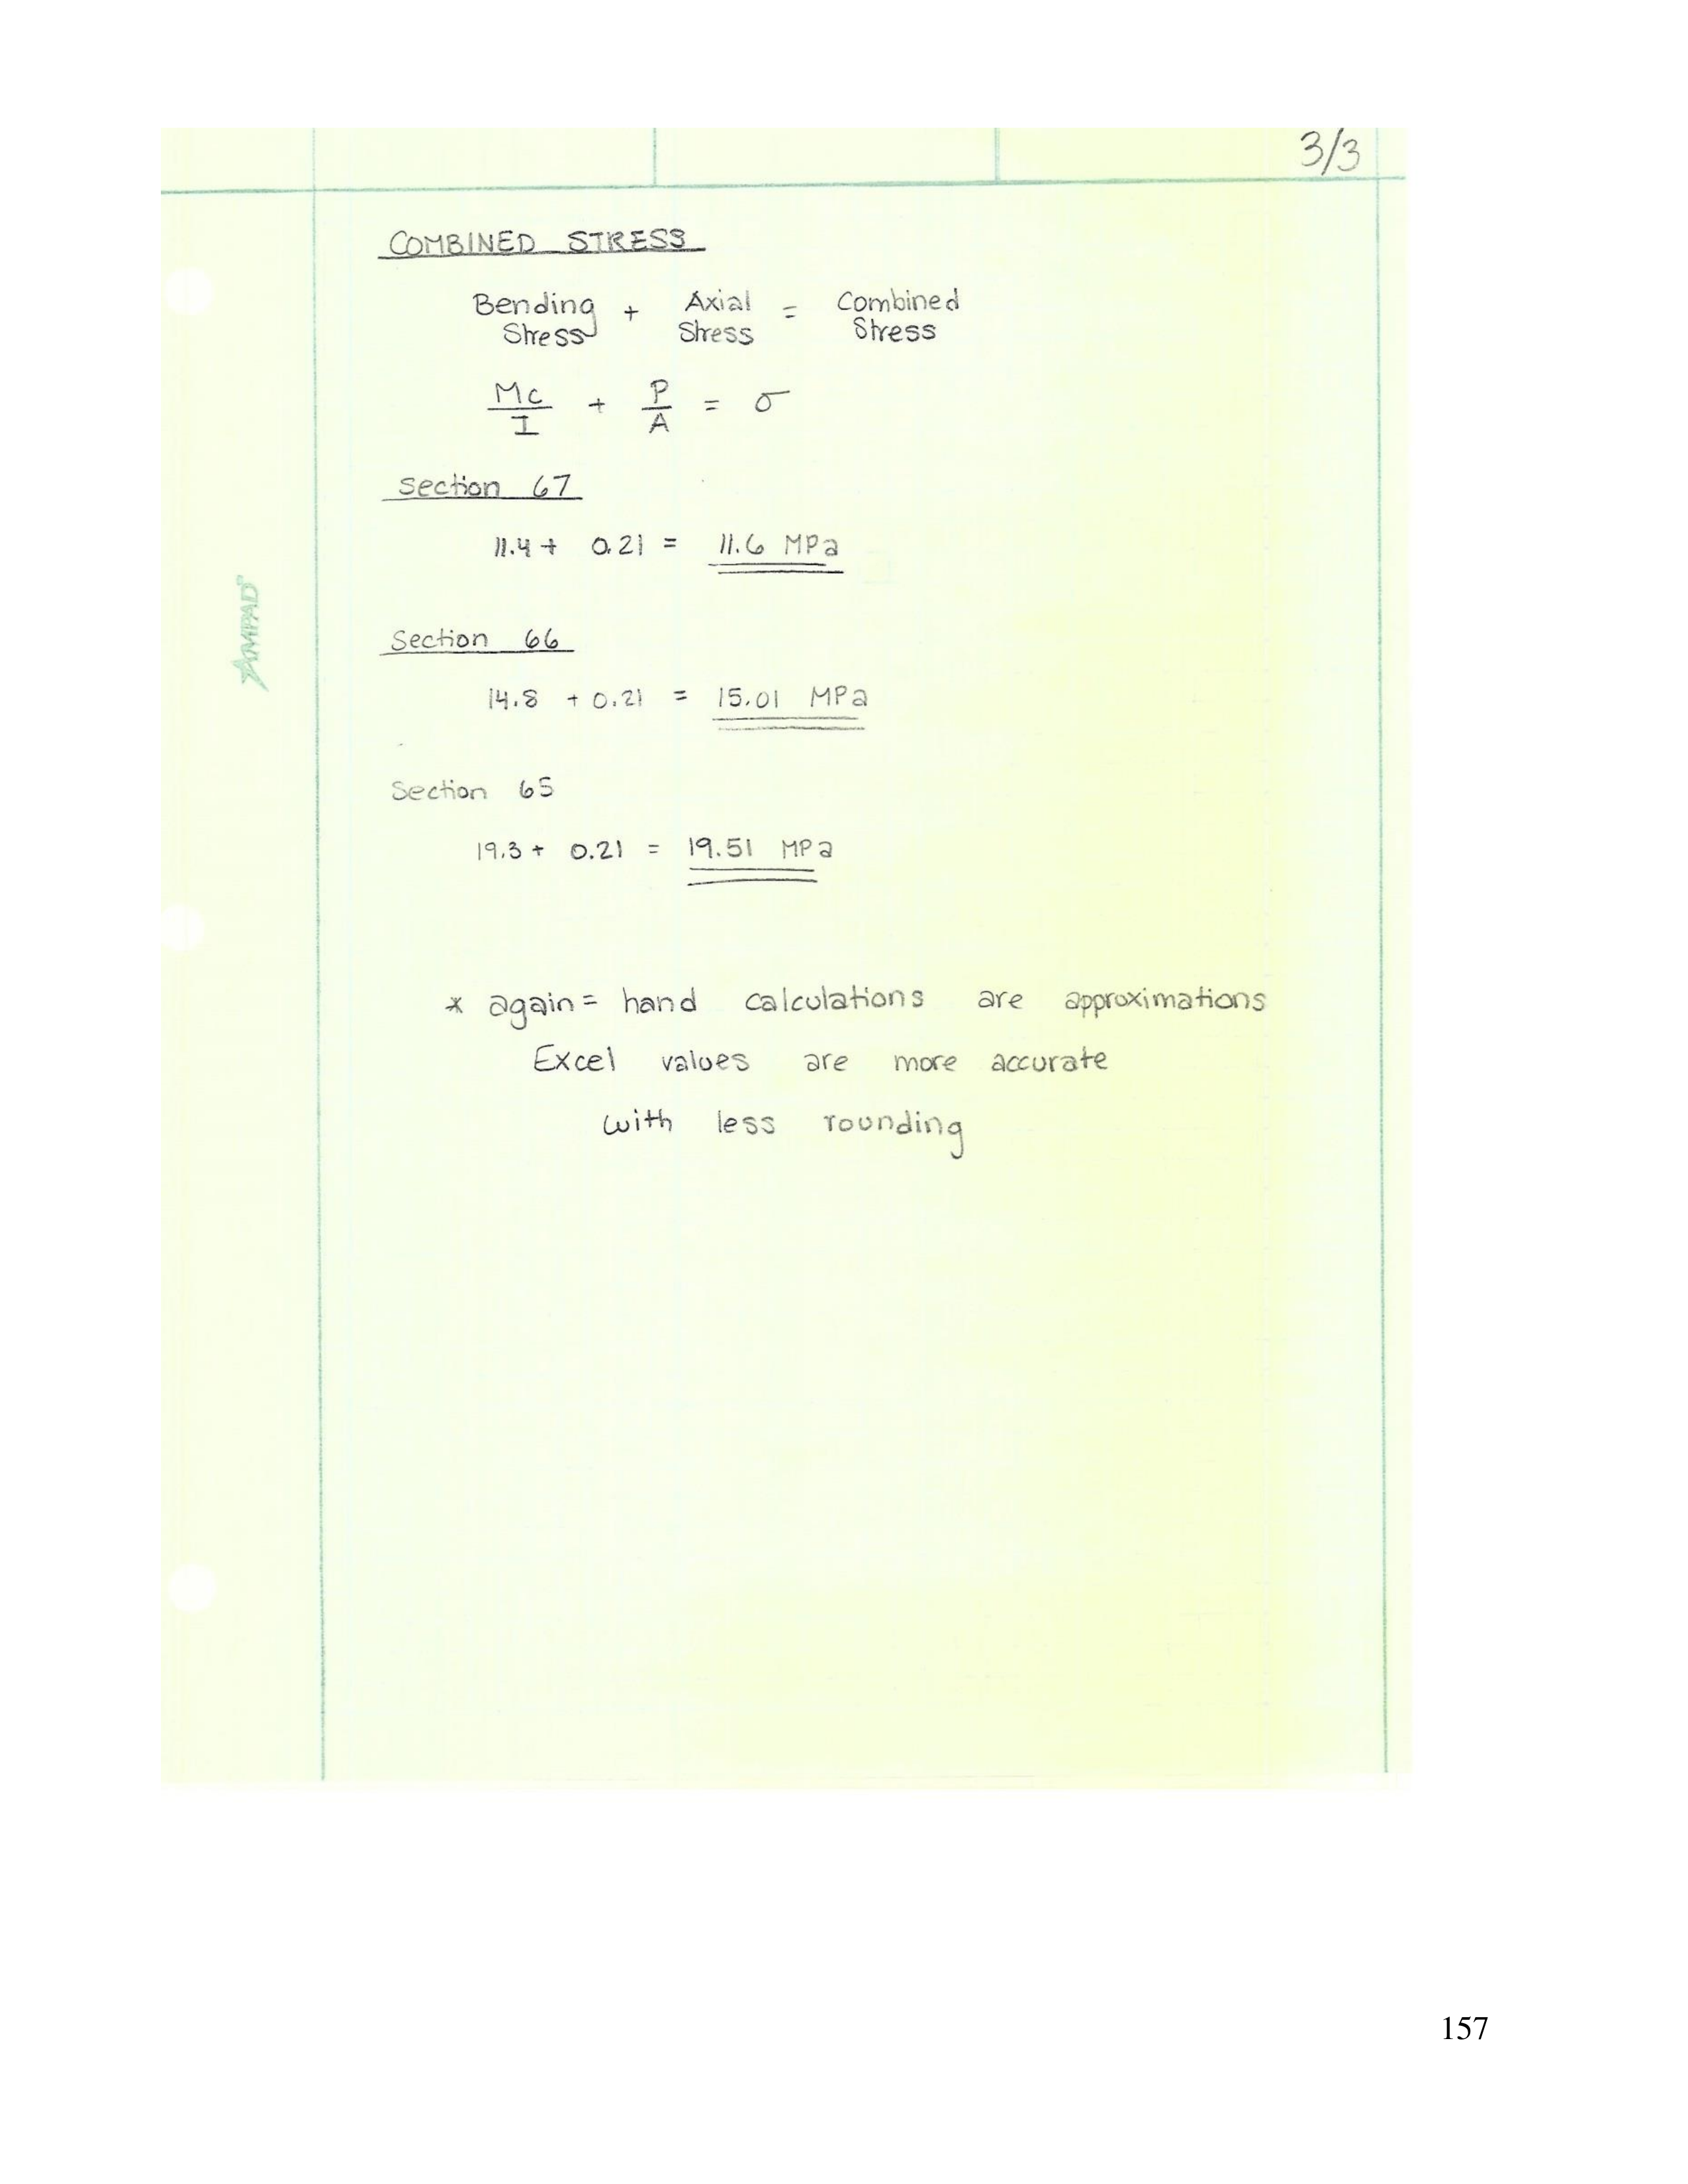 3/3
COMBINED STRESS
Bending Stress + Axial Stress = Combined Stress
Mc/I + P/A = σ
Section 67
11.4 + 0.21 = 11.6 MPa
AMPAD
Section 66
14.8 + 0.21 = 15.01 MPa
Section 65
19.3 + 0.21 = 19.51 MPa
* again = hand calculations are approximations
Excel values are more accurate
with less rounding
157